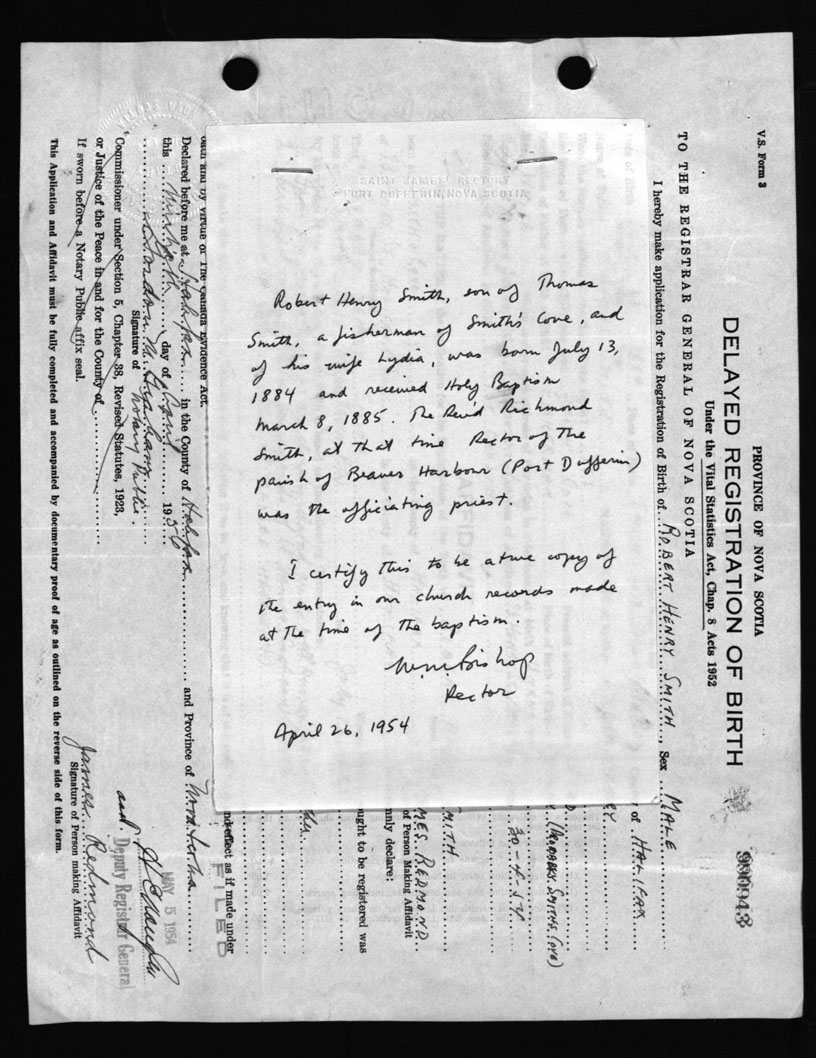 SAINT JAMES' RECTORY
PORT DUFFERIN, NOVA SCOTIA
Robert Henry Smith, son of Thomas
Smith, a fisherman of Smith's Cove, and
of his wife Lydia, was born July 13,
1884 and received Holy Baptism
March 8, 1885. The Rev'd Richmond
Smith, at that time Rector of the
parish of Beaver Harbour (Port Dufferin)
was the officiating priest.
I certify this to be a true copy of
the entry in our church records made
at the time of the baptism.
W.W. Bishop
Rector
April 26, 1954
V.S. Form 3
PROVINCE OF NOVA SCOTIA
DELAYED REGISTRATION OF BIRTH
Under the Vital Statistics Act, Chap. 8 Acts 1952
990043
TO THE REGISTRAR GENERAL OF NOVA SCOTIA
I hereby make application for the Registration of Birth of ROBERT HENRY SMITH, Sex MALE
of HALIFAX
RY
(PROBABLY SMITHS COVE)
30-4-54
MITH
MES REDMOND
of Person Making Affidavit
mnly declare:
ought to be registered was
nd effect as if made under
oath and by virtue of The Canada Evidence Act.
FILED
Declared before me at Halifax in the County of Halifax and Province of Nova Scotia
this day of 195
Signature of Notary Public.
Commissioner under Section 5, Chapter 38, Revised Statutes, 1923,
or Justice of the Peace in and for the County of
If sworn before a Notary Public affix seal.
MAY 5 1954
Deputy Registrar General
James Redmond
Signature of Person making Affidavit
This Application and Affidavit must be fully completed and accompanied by documentary proof of age as outlined on the reverse side of this form.